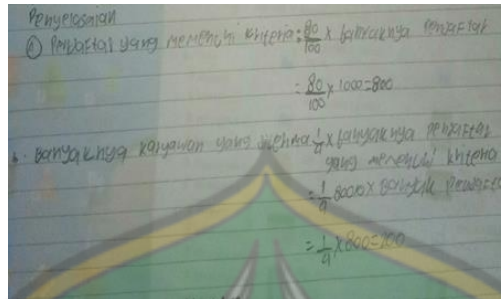 Penyelesaian
a Pendaftar yang memenuhi kriteria = 80/100 x banyaknya pendaftar
= 80/100 x 1000 = 800
b. Banyaknya karyawan yang diterima 1/4 x banyaknya pendaftar
yang memenuhi kriteria
= 1/4 80% x banyak pendaftar
= 1/4 x 800 = 200